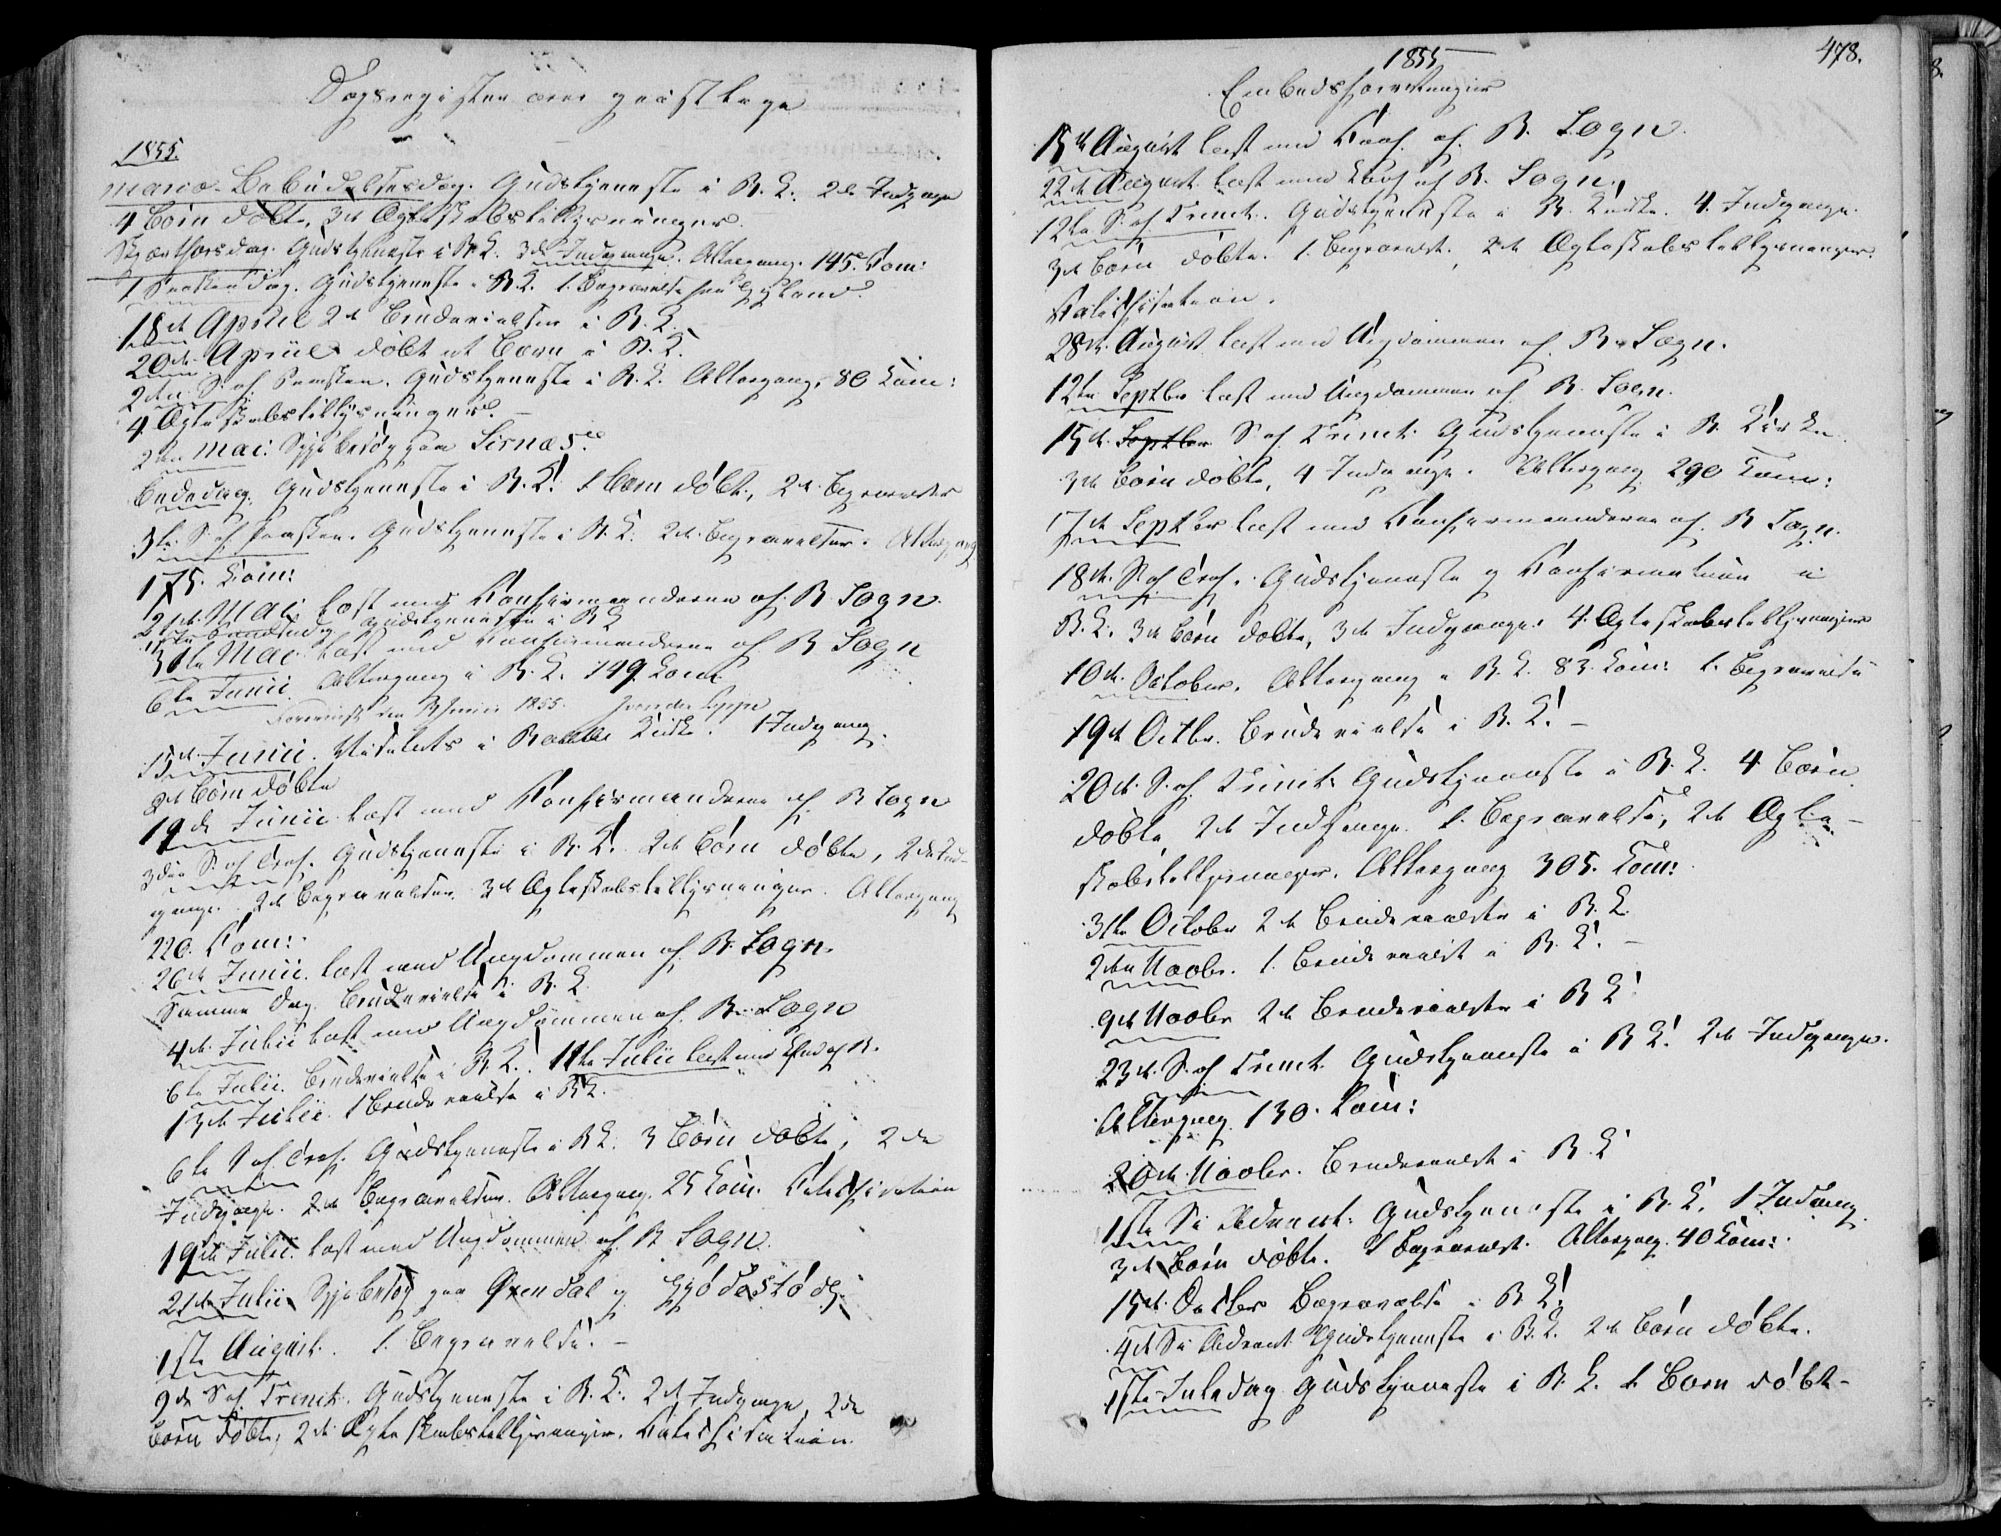 Dagsregister over geistlege
1855.
Mariæ Bebudelsesdag. Gudstjeneste i B. K. 2de Indgange
4 Børn døbte, 3de Ægteskabstillysninger.
Skjærthorsdag. Gudstjeneste i B. K. 3de Indgange. Altergang. 145 Com:
1 Paaskedag. Gudstjeneste i B. K. 1. Begravelse paa Gyland.
18de April 2de Brudevielser i B. K.
20de April døbt et Barn i B. K.
2den S. ef. Paasken. Gudstjeneste i B. K. Altergang, 80 Com:
4 Ægteskabstillysninger. –
2den Mai. Sygebesøg paa Sirnæs.
Bededag. Gudstjeneste i B. K. 1 Barn døbt, 2de Begravelser
3de S. ef. Paasken. Gudstjeneste i B. K. 2de Begravelser. Altergang
175. Com:
21de Mai læst med Confirmanderne af B. Sogn.
Gudstjeneste i B K
31te Mai læst med Confirmanderne af B Sogn
6te Junii. Altergang i B. K. 149 Com
1855.
13de Junii. Visitats i Bakke Kirke. 1 Indgang.
2de Børn døbte
19de Junii læst med Confirmanderne af B Sogn
3die S. ef Tref. Gudstjeneste i B. K. 2de Børn døbte, 2de Ind-
gange. 2de Begravelser. 3de Ægteskabstillysninger. Altergang
220. Com:
26de Junii. læst med Ungdommen af B. Sogn.
Samme Dag Brudevielse i B. K.
4de Julii læst med Ungdommen af B. Sogn
6te Julii. Brudevielse i B. K. 11te Julii læst med Ungd af B.
13de Julii. 1 Brudevielse i B K.
6te S ef. Tref. Gudstjeneste i B K. 3 Børn døbte, 2de
Indgange. 2de Begravelser. Altergang. 25 Com. Catechisation
19de Julii læst med Ungdommen af B Sogn.
21de Julii Sygebesøg paa Øxendal og
1ste August. 1. Begravelse. –
9de S ef. Trinit. Gudstjeneste i B. K. 2de Indgange, 2de
Børn døbte, 2de Ægteskabstillysninger. Catechisation.
1855
478.
Embedsforretninger
15de August læst med Conf. af B. Sogn.
22de August læst med Conf af B. Sogn.
12te S. ef. Trinit. Gudstjeneste i B. Kirke. 4. Indgange.
3de Børn døbte. 1. Begravelse. 2de Ægteskabstillysninger.
Catechisation.
28de August læst med Ungdommen af B. Sogn.
12te Septbr læst med Ungdommen af B. Sogn.
15de Septbr S. ef. Trinit. Gudstjeneste i B. Kirke.
3de Børn døbte, 4 Indgange. Altergang 290 Com:
17de Septbr læst med Confirmanderne af B Sogn.
18de S. ef Tref. Gudstjeneste og Confirmation i
B. K. 3de Børn døbte, 3de Indgange. 4. Ægteskabstillysninger
10de October. Altergang i B. K. 83. Com: 1. Begravelse
19de Octbr. Brudevielse i B. K. –
20de S. ef. Trinit: Gudstjeneste i B. K. 4 Børn
døbte, 2de Indgange. 1. Begravelse, 2de Ægte-
skabstillysninger. Altergang 305. Com:
31te October 2de Brudevielser i B. K.
2den Novbr. 1. Brudevielse i B. K. –
9de Novbr 2de Brudevielser i B K
23de S. ef Trinit Gudstjeneste i B K. 2de Indgange.
Altergang. 130. Com:
20de Novbr. Brudevielse i B. K
1ste Sø Advent. Gudstjeneste i B. K. 1 Indgang
3de Børn døbte. 1 Begravelse. Altergang. 40 Com:
15de Decbr Begravelse i B K.
4de Sø Advent Gudstjeneste i B. K. 2de Børn døbte.
1ste Juledag Gudstjeneste i B. K. 1 Barn døbt –